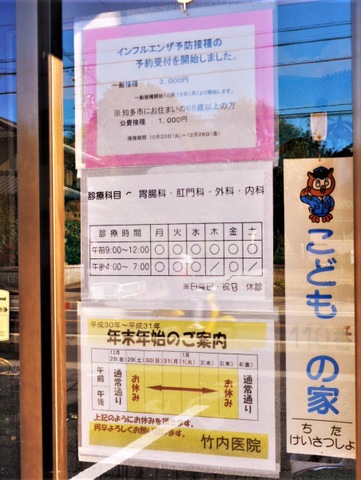 インフルエンザ予防接種の
予約受付を開始しました。
一般接種 3,000円
一般接種開始10月15日(月)より開始します。
※知多市にお住まいの65歳以上の方
公費接種 1,000円
接種期間 10月23日(火)~12月28日(金)
診療科目~ 胃腸科・肛門科・外科・内科
診療時間 月 火 水 木 金 土
午前9:00~12:00 ○ ○ ○ ○ ○ ○
午後4:00~ 7:00 ○ ○ ○ / ○ /
※日曜日・祝日 休診
平成30年~平成31年
年末年始のご案内
12月 1月
28(金) 29(土) 30(日) 31(月) 1(火) 2(水) 3(木) 4(金)
午前 通常通り お休み お休み 通常通り
午後
上記のようにお休みを頂きます。
何卒よろしくお願い致します。
竹内医院
こどもの家
ちた
けいさつしょ